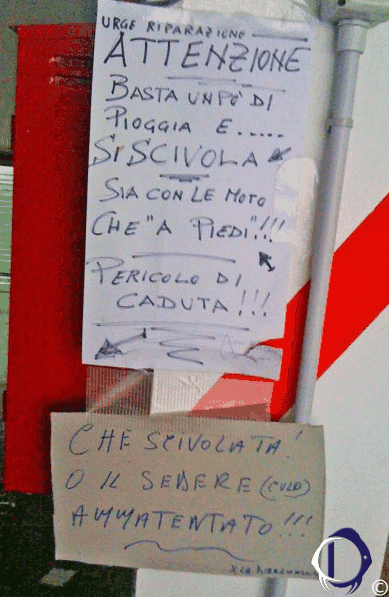 URGE RIPARAZIONE
ATTENZIONE
BASTA UN PO' DI
PIOGGIA E.....
SI SCIVOLA
SIA CON LE MOTO
CHE "A PIEDI"!!!
PERICOLO DI
CADUTA!!!
CHE SCIVOLATA!
O IL SEDERE (CULO)
AMMATENTATO!!!
©